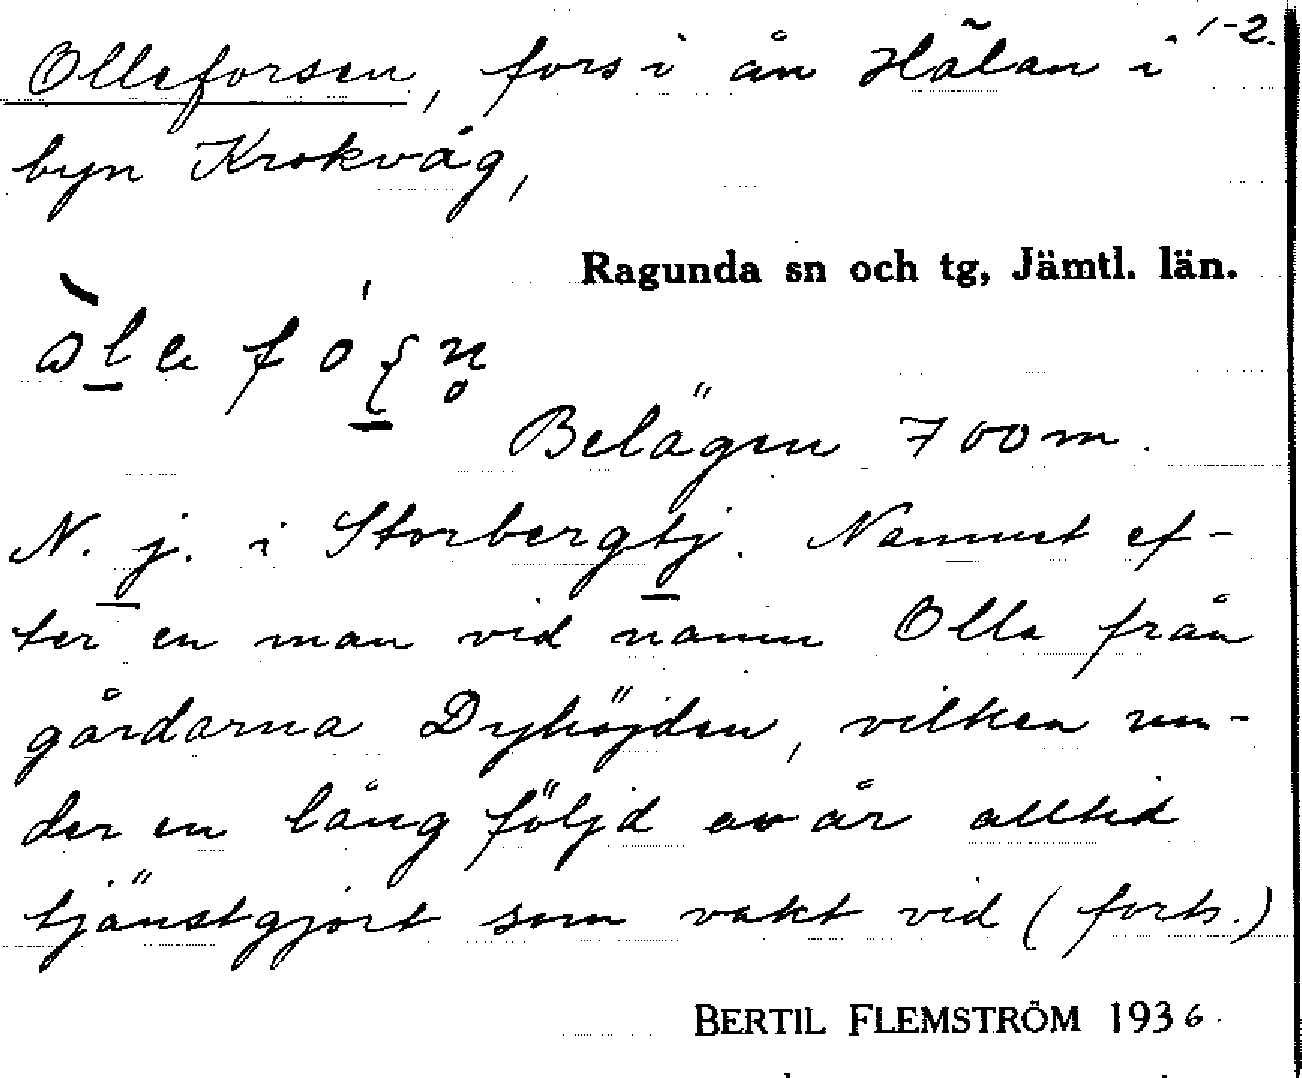 1-2.
Olleforsen, fors i ån Hälan i
byn Krokvåg,
Ragunda sn och tg, Jämtl. län.
Belägen 700 m.
N. j. i Storbergtj. Namnet ef-
ter en man vid namn Olle från
gårdarna Dyhöjden, vilken un-
der en lång följd av år alltid
tjänstgjort som vakt vid (forts.)
BERTIL FLEMSTRÖM 1936.